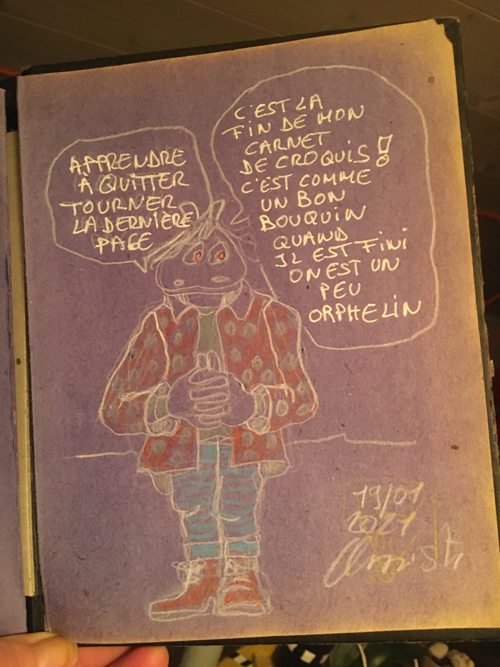 APPRENDRE
À QUITTER
TOURNER
LA DERNIÈRE
PAGE
C'EST LA
FIN DE MON
CARNET
DE CROQUIS !
C'EST COMME
UN BON
BOUQUIN
QUAND
IL EST FINI
ON EST UN
PEU
ORPHELIN
19/01
2021